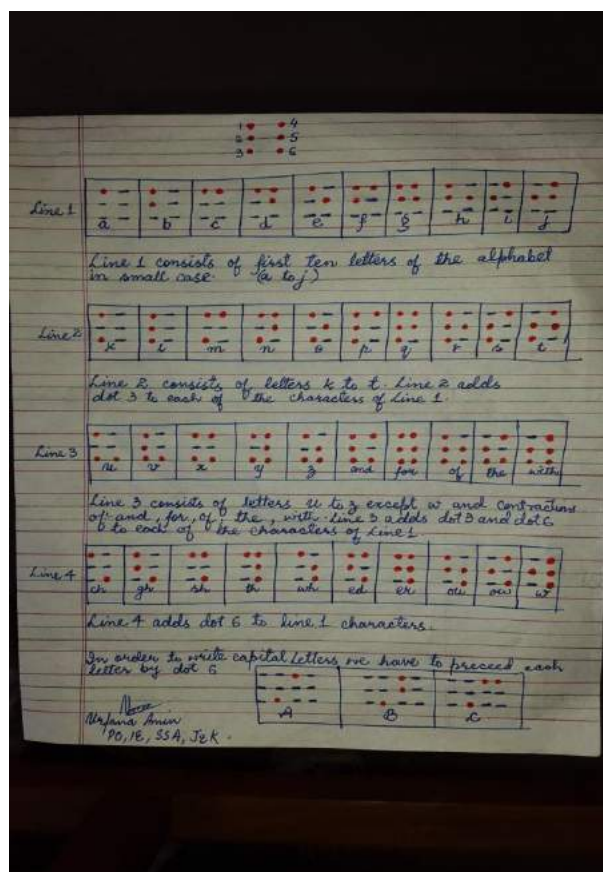 1 4
2 5
3 6
Line 1 a b c d e f g h i j
Line 1 consists of first ten letters of the alphabet
in small case. (a to j)
Line 2 k l m n o p q r s t
Line 2 consists of letters k to t. Line 2 adds
dot 3 to each of the characters of Line 1.
Line 3 u v x y z and for of the with
Line 3 consists of letters u to z except w and contractions
of and, for, of, the, with. Line 3 adds dot 3 and dot 6
to each of the characters of Line 1.
Line 4 ch gh sh th wh ed er ou ow w
Line 4 adds dot 6 to line 1 characters.
In order to write capital letters we have to preceed each
letter by dot 6
A B C
Urfana Amin
PO, IE, SSA, J&K.